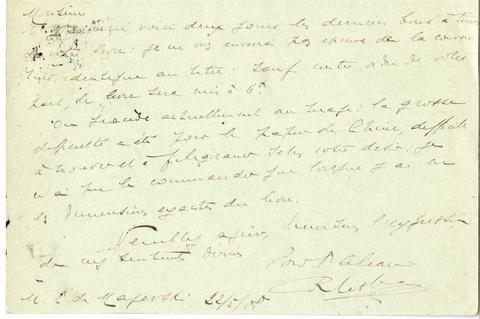 Monsieur
voici deux jours les dernières bons à tirer
de votre livre : je ne vous enverrai pas épreuve de la couverture
identique au titre : sauf contre ordre de votre
part, le livre sera mis à 6f.
On procède actuellement au tirage : la grosse
difficulté a été pour le papier de Chine, difficile
à trouver et à filigraner selon votre désir : je
n'ai pu le commander que lorsque j'ai eu
les dimensions exactes du livre.
Veuillez agréer, Monsieur, l'expression
de mes sentiments dévoués
Pour F. Alcan
M. E. de Majewski 22/5/08